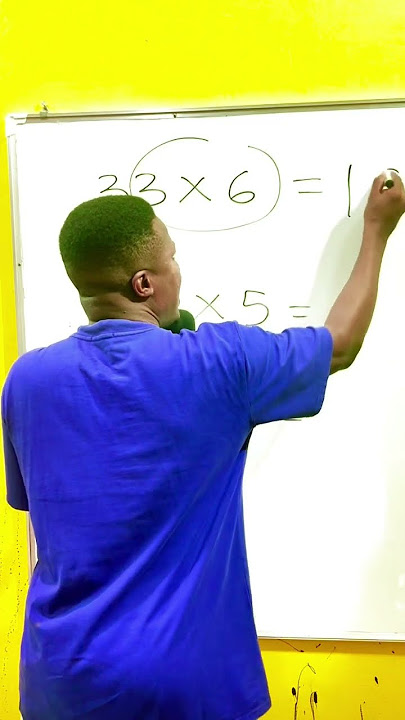 33 × 6 = 1
× 5 =